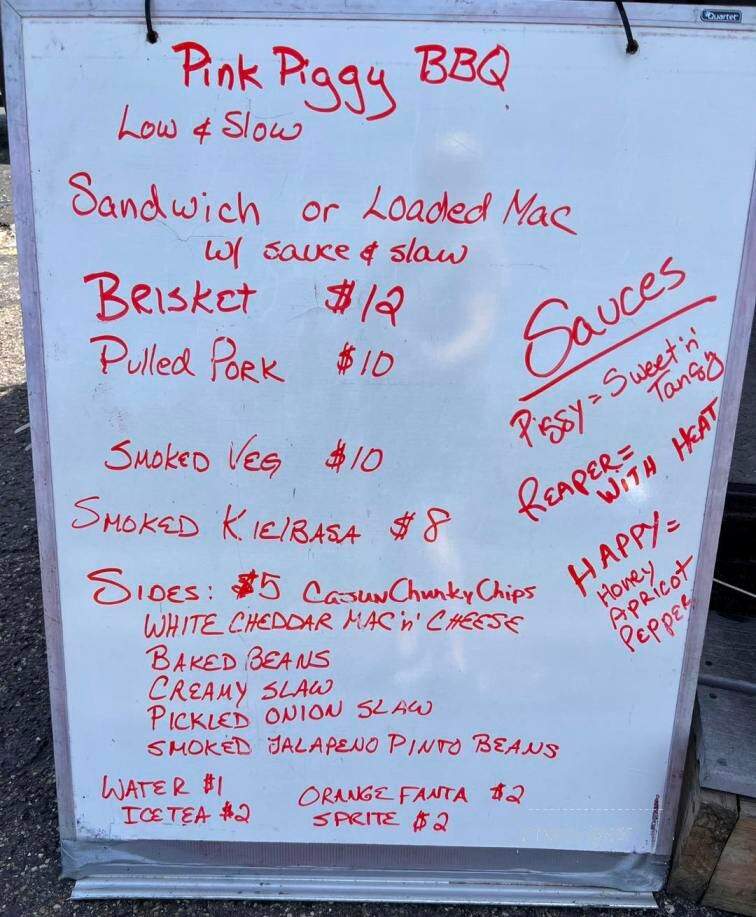 Quartet
Pink Piggy BBQ
Low & Slow
Sandwich or Loaded Mac
w/ sauce & slaw
BRISKET $12
Pulled PORK $10
SMOKED VEG $10
SMOKED KIElBASA $8
SIDES: $5 CAJUN Chunky Chips
WHITE CHEDDAR MAC 'n' CHEESE
BAKED BEANS
CREAMY SLAW
PICKLED ONION SLAW
SMOKED JALAPENO PINTO BEANS
WATER $1
ICE TEA $2
ORANGE FANTA $2
SPRITE $2
SAUCES
PIGGY = Sweet 'n'
Tangy
REAPER =
WITH HEAT
HAPPY =
Honey
APRICOT
PEPPER